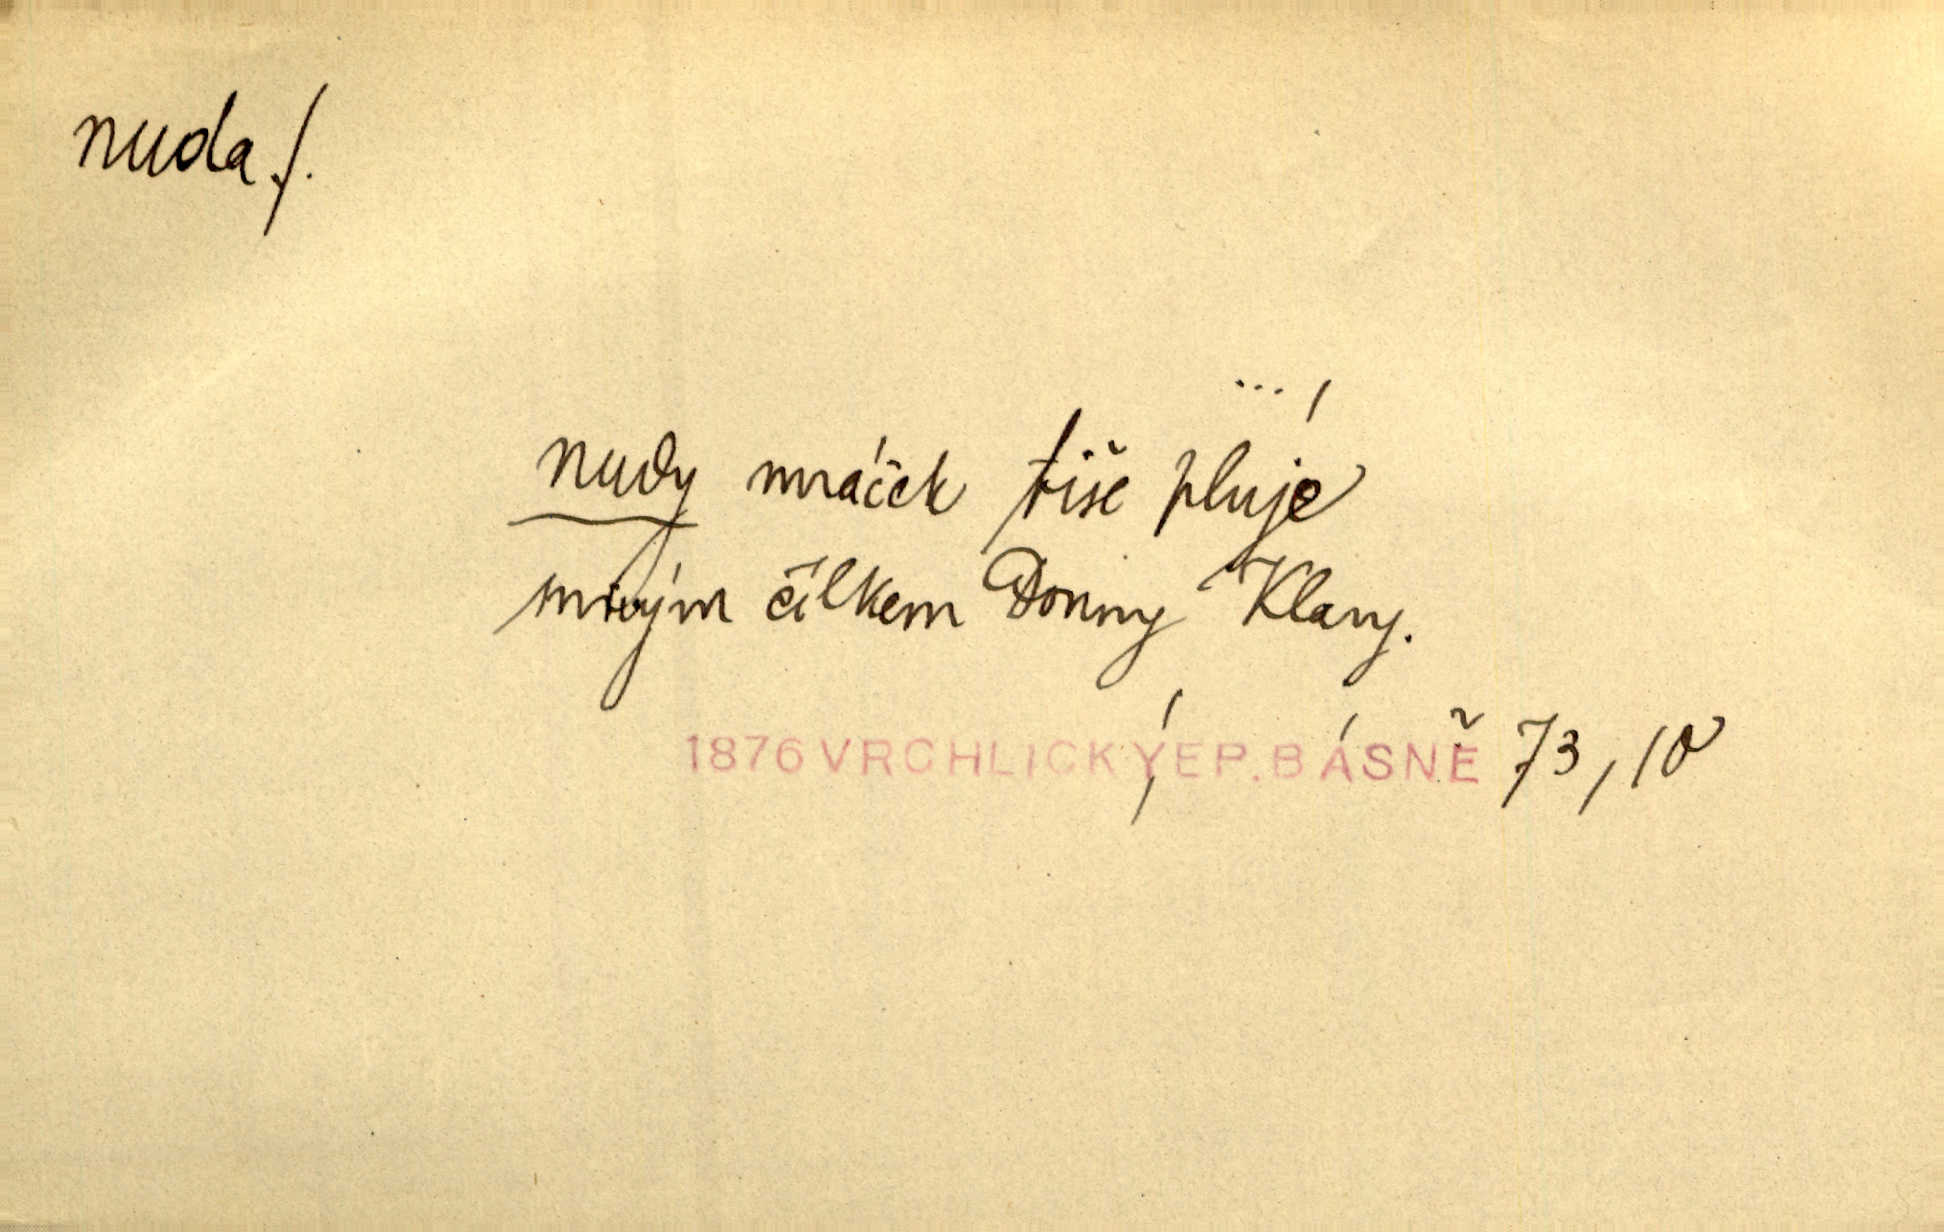 nuda f.
... /
nudy mráček tiše pluje
snivým čílkem Donny Klary.
1876 VRCHLICKÝ EP. BÁSNĚ 73, 10